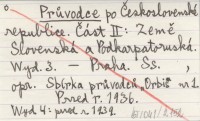 Průvodce po Československé
republice. Část II: Země
Slovenská a Podkarpatoruská.
Wyd. 3. – Praha. Ss. ,
opr. Sbírka průvodců „Orbis" № 1.
Przed r. 1936.
Wyd 4: przed r. 1937.